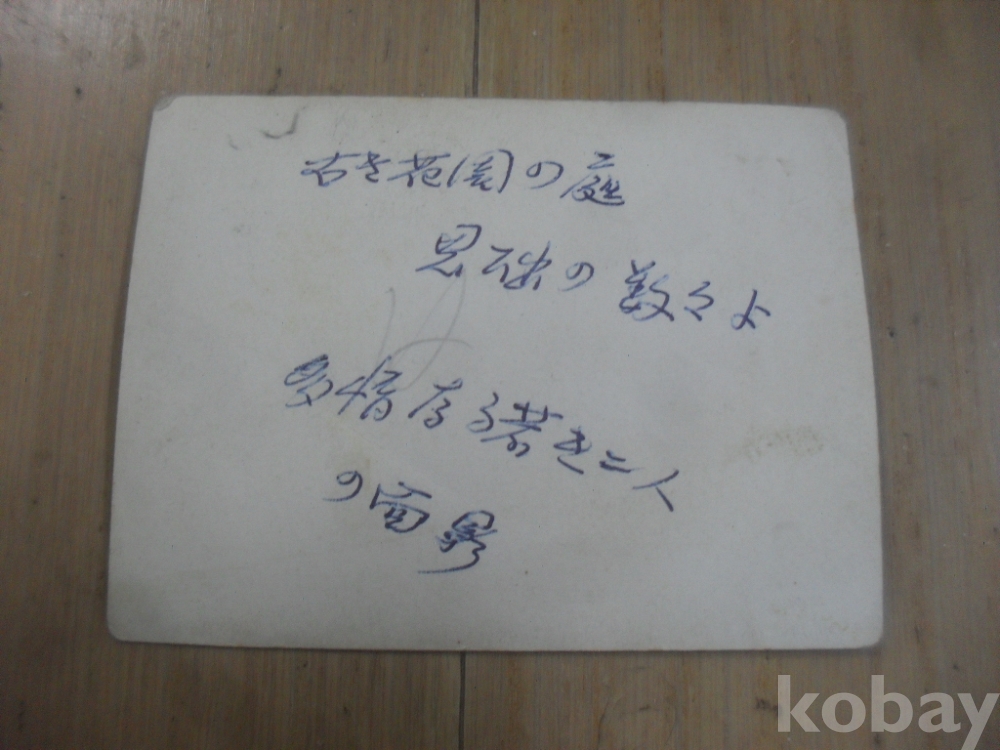 古き花園の庭
思出の数々よ
多情なる若き二人
の面影
kobay